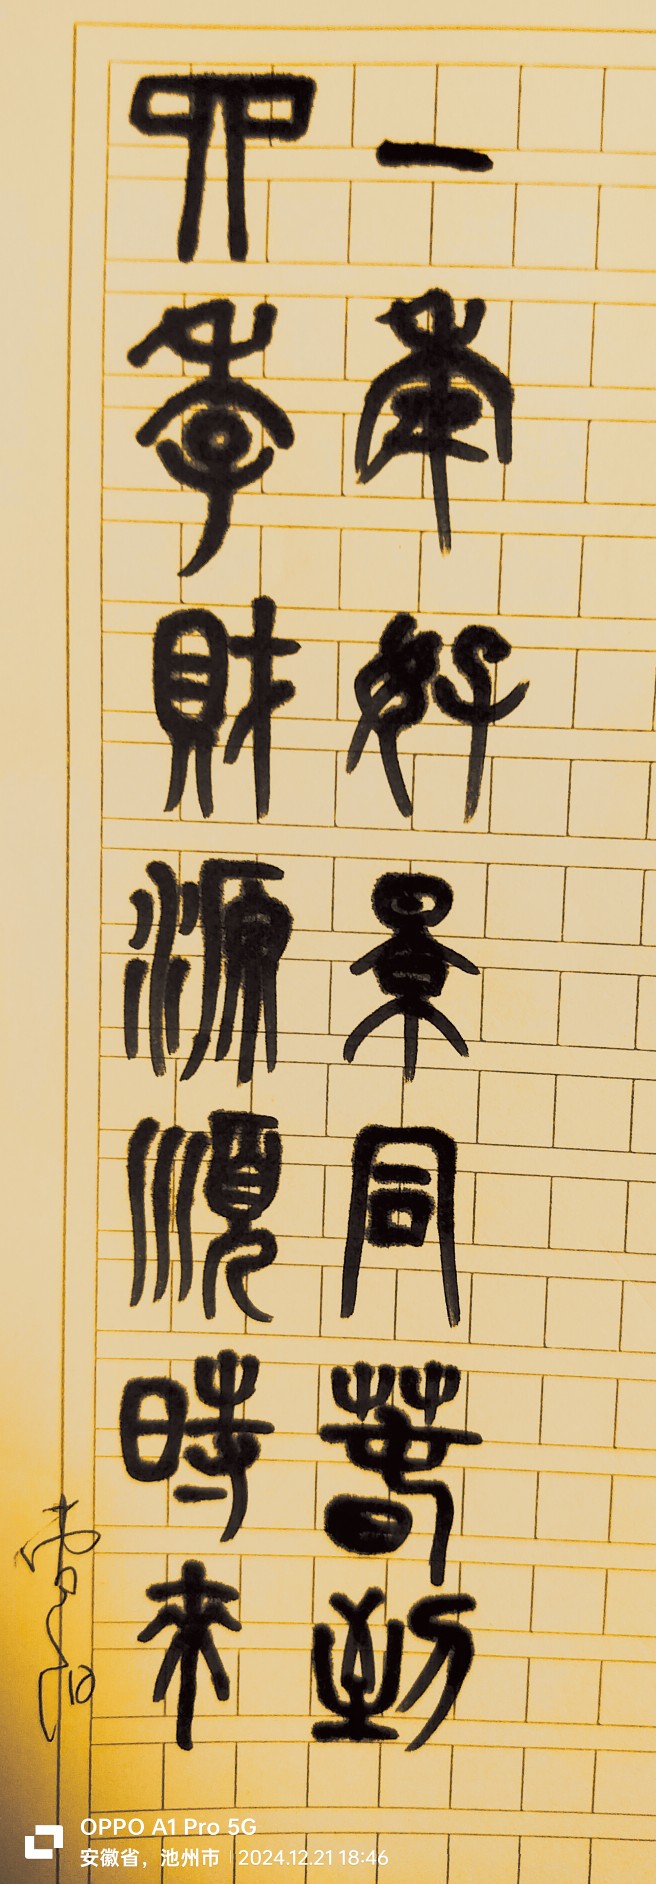 一年好景同春到
四季財源順時來
OPPO A1 Pro 5G
安徽省，池州市 | 2024.12.21 18:46